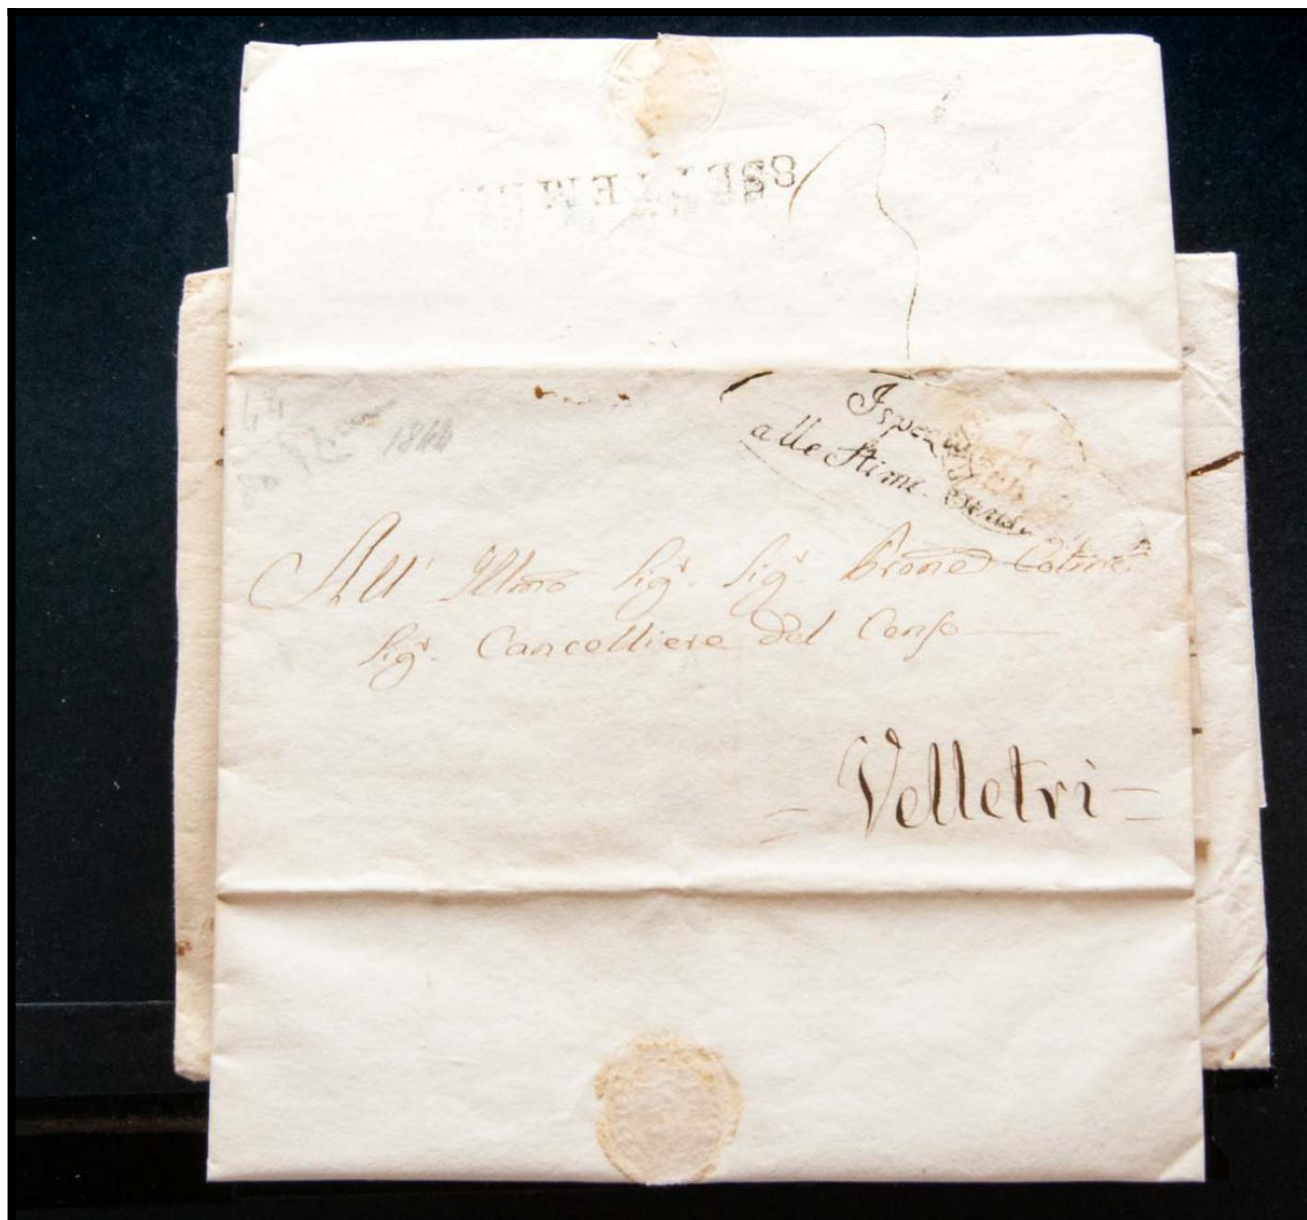 8 SETTEMB
1844
alle Stime
All' Illmo Sigr. Sigr. Prone Colmo
Sigr. Cancelliere del Censo
= Velletri =